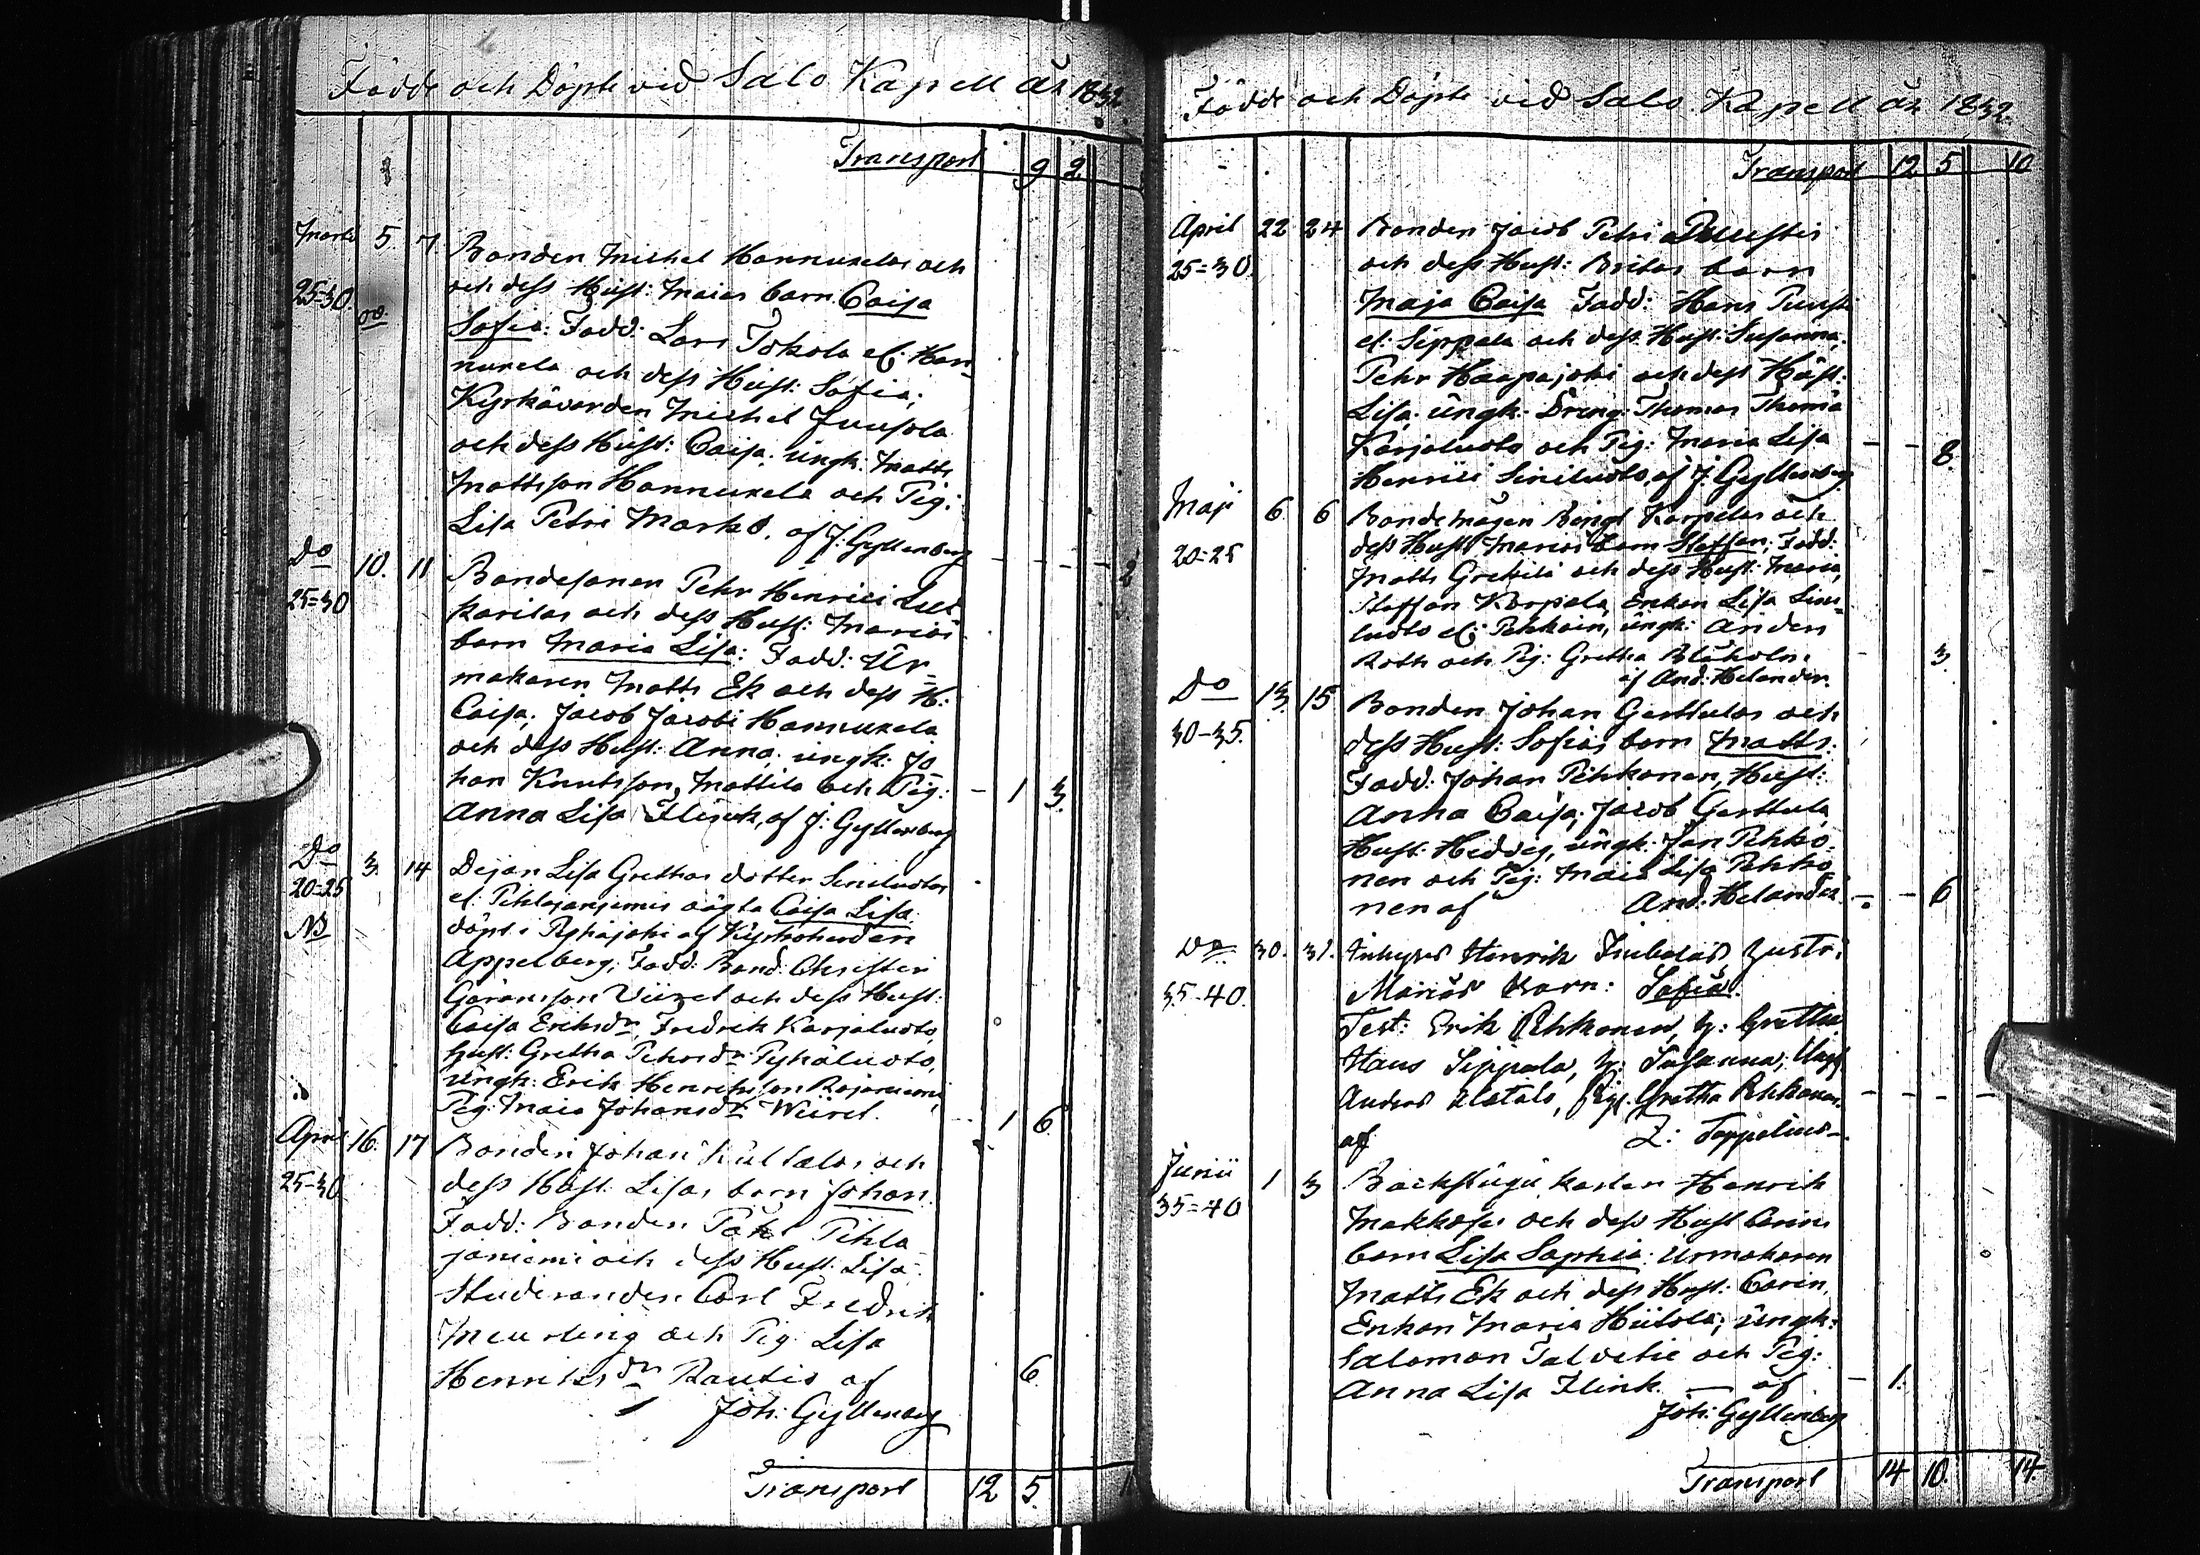 Födde och Döpte vid Salo Kapell År 1832.
Transport 9 2
Marti 5. 7. Bonden Michel Hannukelas och
25=30. och dess Hust: Maias barn Caisa
oä. Sofia: Fadd: Lars Tokola el: Han-
nukela och dess Hust: Sofia;
Kyrkåvärden Michel Juusola
och dess Hust: Caisa; ungk: Matts
Mattsson Hannukela och Pig:
Lisa Petri Marks. af J: Gyllenberg
Do 10. 11 Bondesonen Pehr Henrici
25=30 karilas och dess Hust: Marias
barn Maria Lisa: Fadd: Ur-
makaren Matts Ek och dess H:
Caisa; Jacob Jacobi Hannukela
och dess Hust: Anna; ungk: Jo
han Knutsson, Mattila och Pig: 1 3.
Anna Lisa Flinck, af J: Gyllenberg
Do 3. 14 Dejan Lisa Grethas dotter Siniluotos
20=25 el: Pihlajaniemis oägta Caisa Lisa
NB döpt i Pyhäjoki af Kyrkoherden
Appelberg; Fadd: Bond: Christer
Göransson Viizel och dess Hust:
Caisa Eriksdr Fredrik Karjaluoto,
Hust: Gretha Pehrsdr Pyhäluoto,
ungk: Erik Henriksson Rajaniemi,
Pig: Maia Johansdr 1 6
April 16. 17 Bonden Johan Kultalas och
25-30 dess Hust: Lisas barn Johan.
Fadd: Bonden Påhl Pihla
janiemi och dess Hust: Lisa
Studeranden Carl Fredrik
Meurling och Pig Lisa
Henriksdr Rautio af 6.
Joh: Gyllenberg
Transport 12 5.
Födde och Döpte vid Salo Kapell år 1832.
Transport 12 5 10
April 22 24 Bonden Jacob Petri Puustis
25=30. och dess Hust: Britas barn
Maja Caisa Fadd: Hans Puusti
el: Sippala och dess Hust: Susanna;
Pehr Haapajoki och dess Hust:
Lisa. ungk. Dreng: Thomas Thomæ
Karjaluoto och Pig: Maria Lisa 8.
Henrici Siniluoto, af J. Gyllenberg
Maji 6 6 Bondemågen Bengt Korpelas och
20=25 dess Hust Marias barn Staffan; Fadd:
Matts Grekilä och dess Hust: Maria,
Staffan Korpela, Enkan Lisa Sini-
luoto el: Pehkoin, ungk: Anders
Roth och Pig: Gretha 3.
af And: Helander.
Do 13. 15 Bonden Johan Gerttulas och
30-35. dess Hust: Sofias barn Matts:
Fadd: Johan Pehkonen, Hust:
Anna Caisa; Jacob Gerttula,
Hust: Hedvig, ungk: Jan Pehko-
nen och Pig: Maia Lisa Pehko
nen af And: Helander 6
Do 30. 31. Inhyses Henrik hustr:
35-40. Marias Barn: Sofia.
Test: Erik Pehkonen, h: Gretha
Hans Sippala, h: Susanna; Ungk
Anders Alatalo, Pig. Gretha Pehkonen.
af Z: Toppelius.
Junii 1 3 Backstugu karlen Henrik
35=40 Makkoses och dess Hust Carins
barn Lisa Sophia: Urmakaren
Matts Ek och dess Hust: Carin,
Enkan Maria Hiitola; ungk:
Salomon Talvetie och Pig:
Anna Lisa Flink. — af 1.
Joh: Gyllenberg
Transport 14 10. 14.